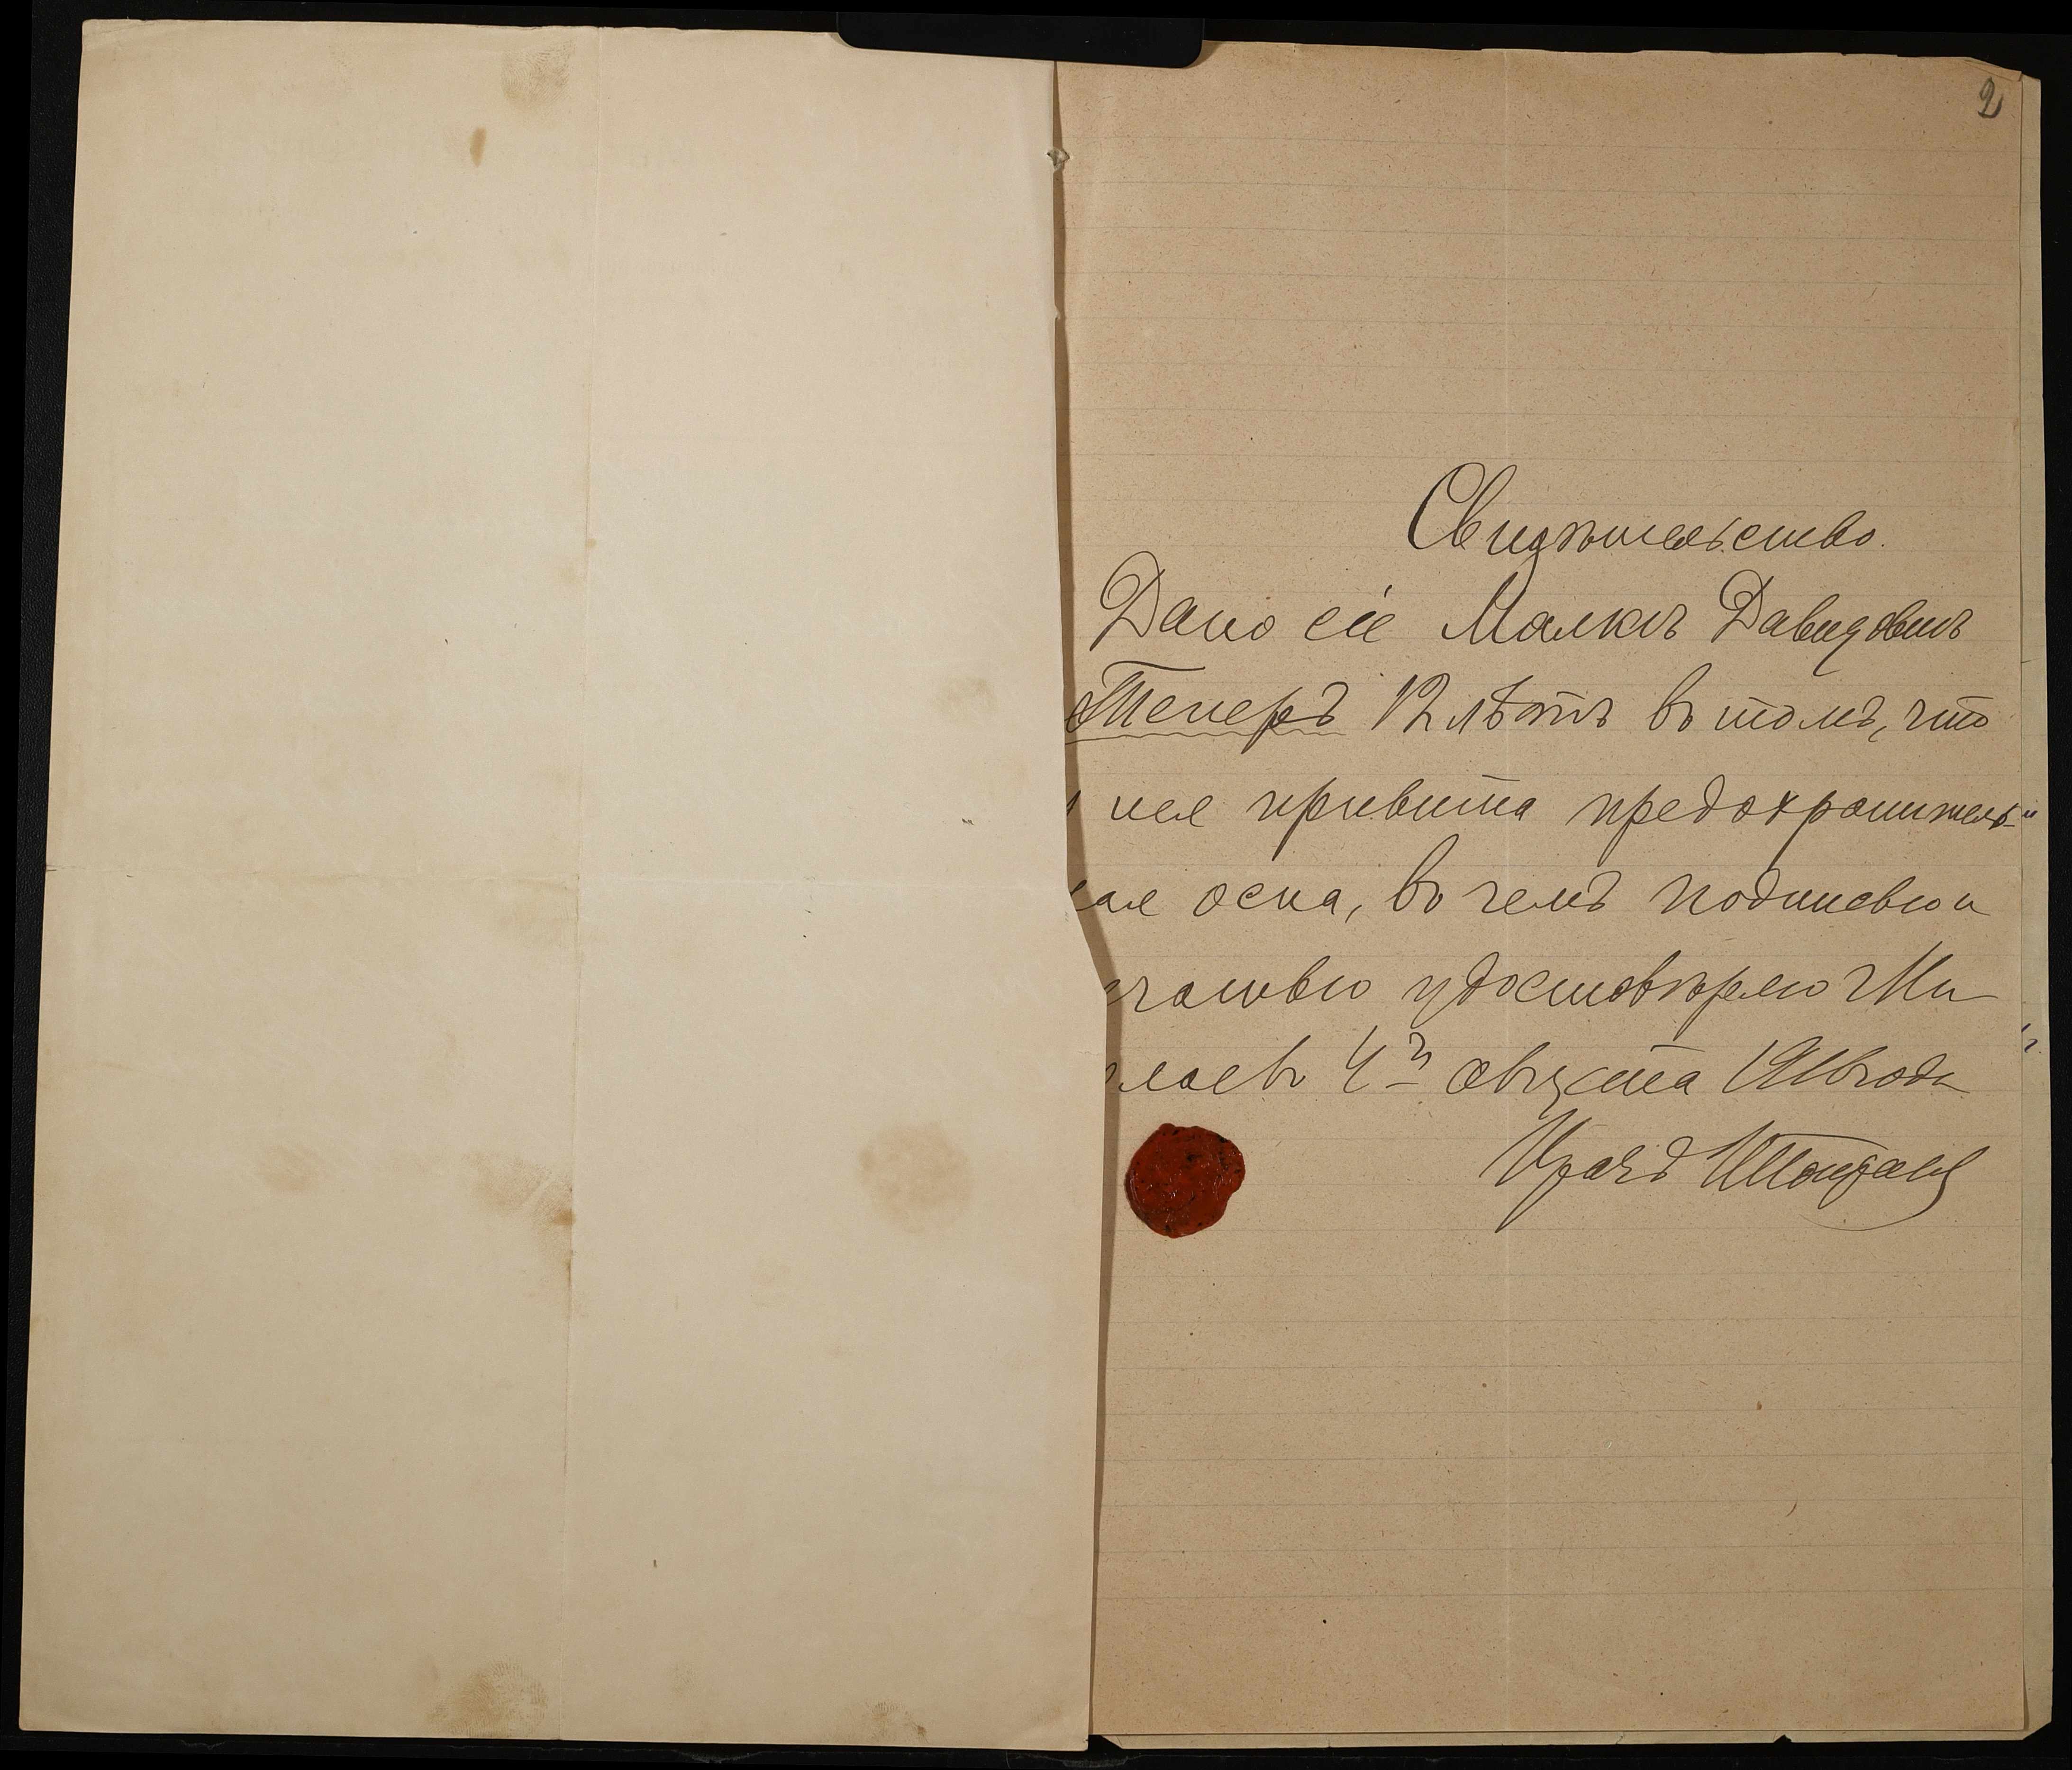 2
Свидѣтельство.
Дано сіе Малкѣ Давидовнѣ
Теперъ 12 лѣтъ въ томъ, что
ней привита предохранитель-
ная оспа, въ чемъ подписью и
печатью удостовѣряю Ни
колаевъ 4го августа 191 года
Врачъ